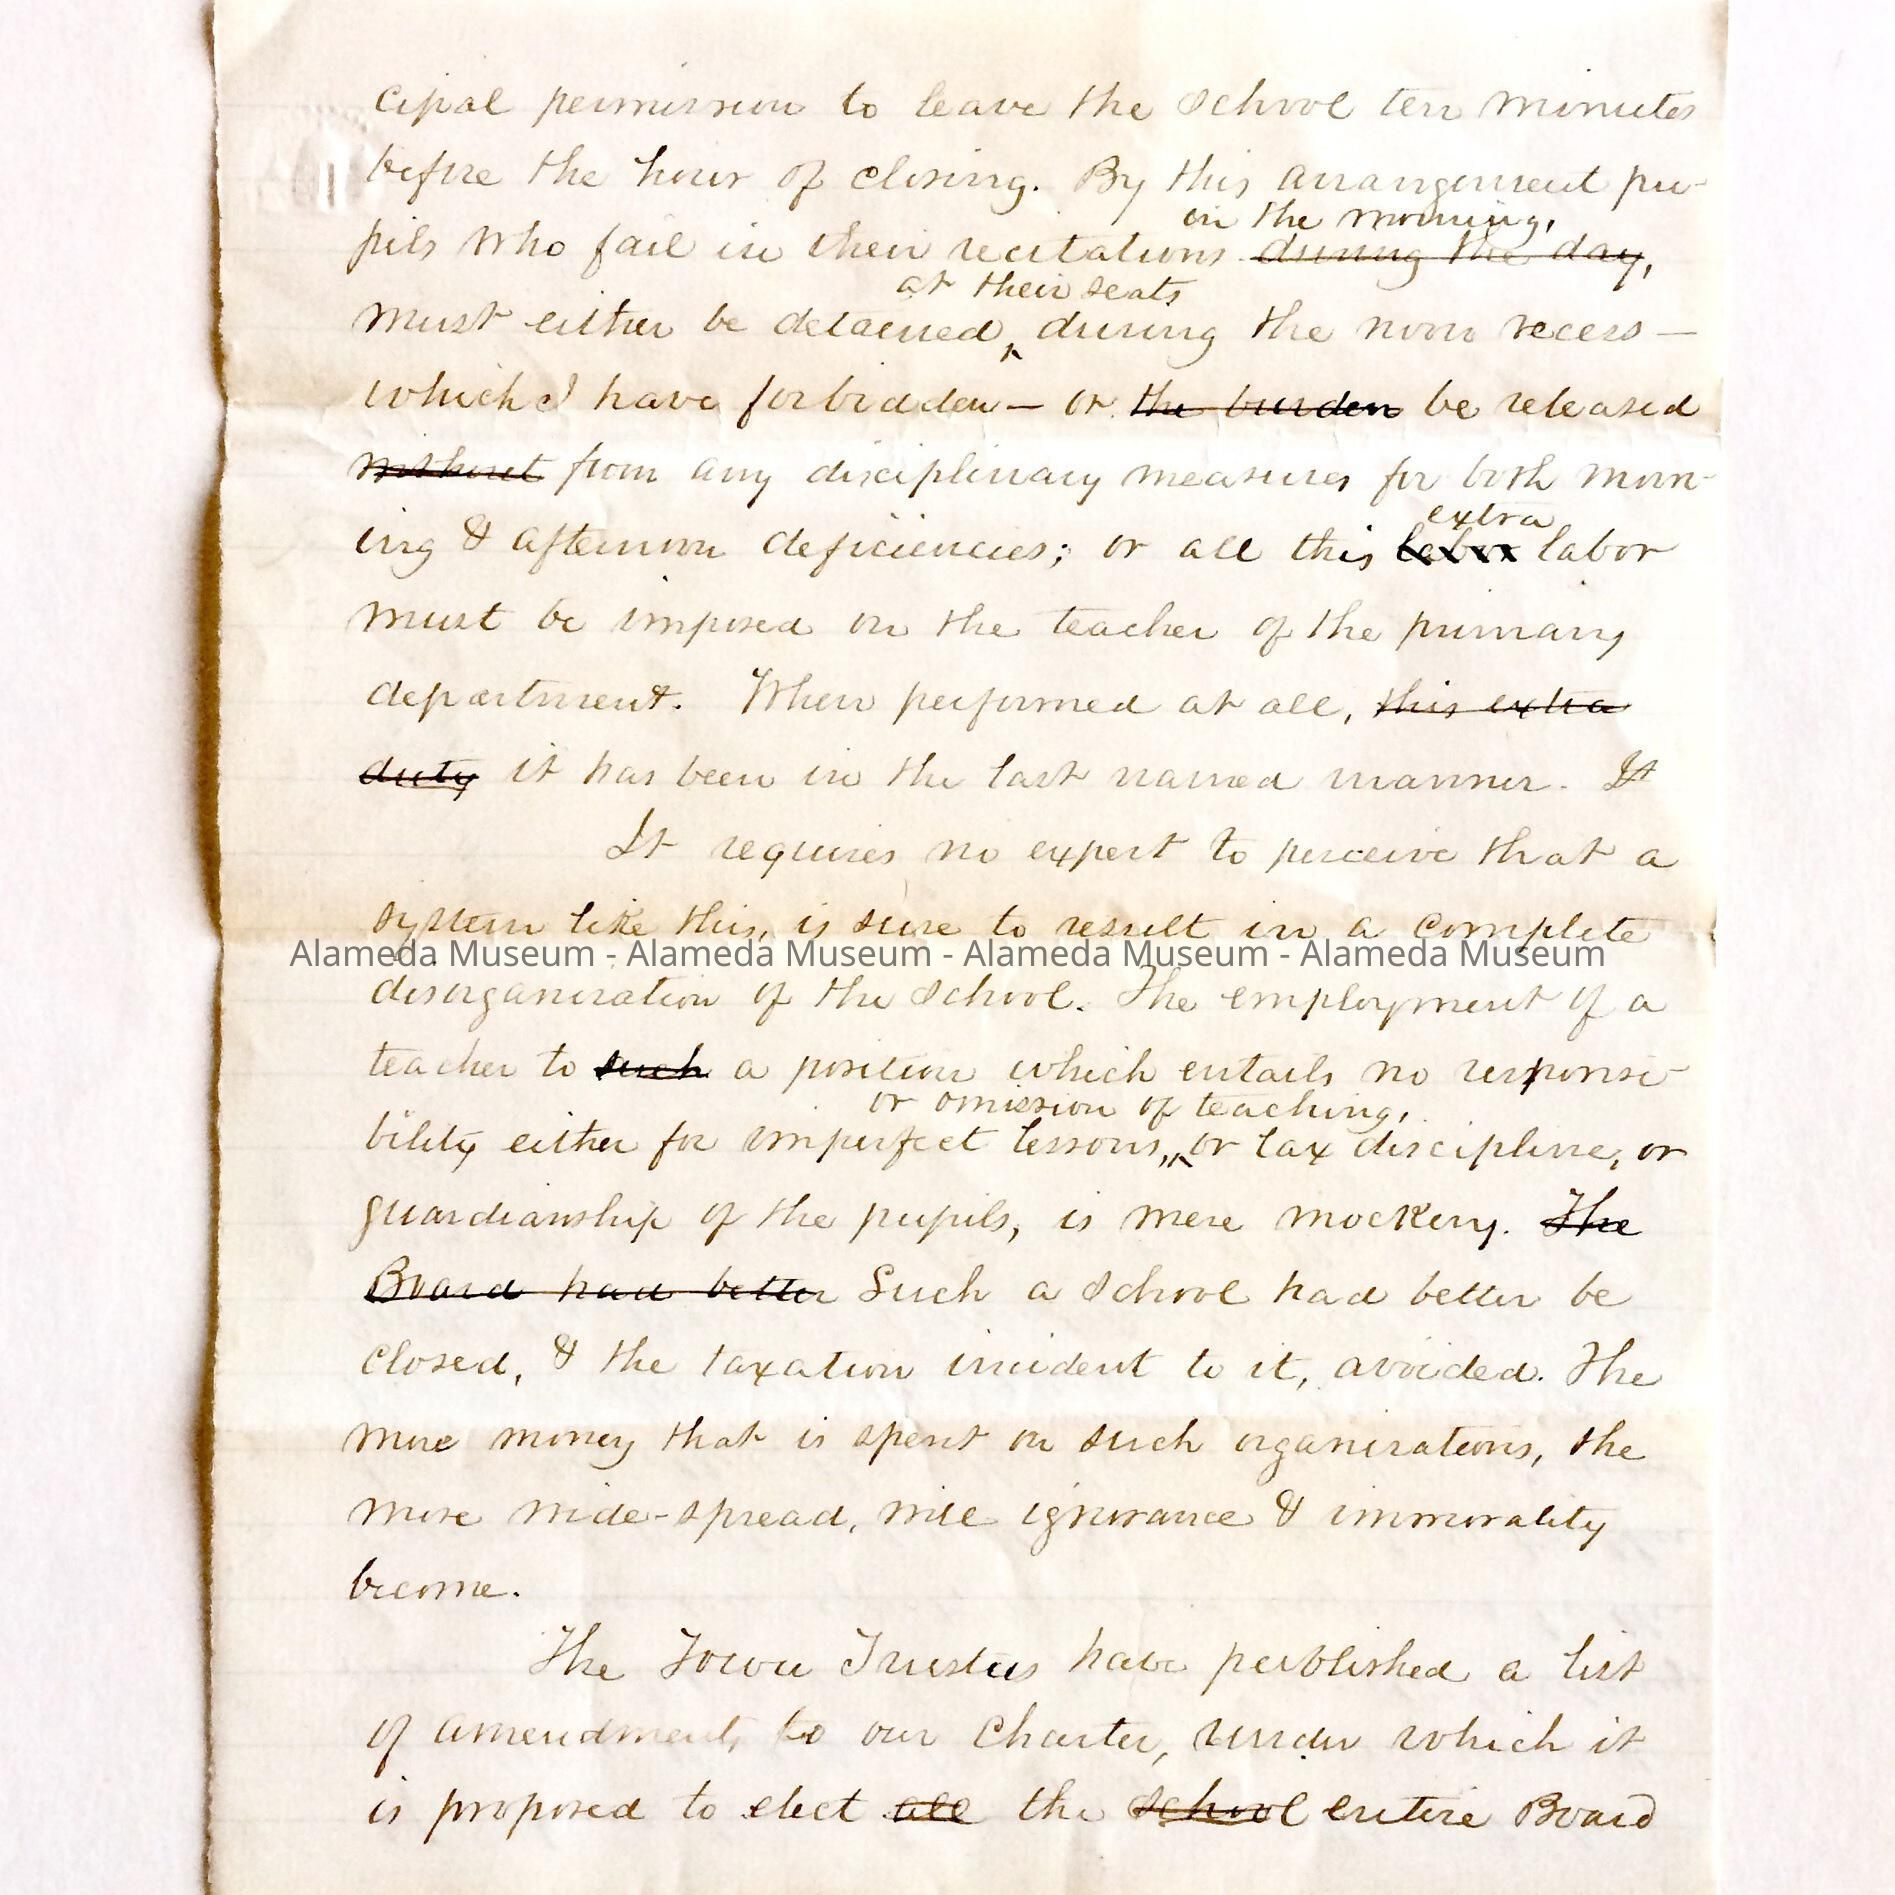 cipal permission to leave the school ten minutes
before the hour of closing. By this arrangement pu-
in the morning,
pils who fail in their recitations during the day,
at their seats
must either be detained, during the noon recess—
which I have forbidden— or the burden be released
without from any disciplinary measures for both morn-
ing & afternoon deficiencies; or all this labor labor
extra
must be imposed on the teacher of the primary
department. When performed at all, this extra
duty it has been in the last named manner. It
It requires no expert to perceive that a
system like this, is sure to result in a complete
Alameda Museum - Alameda Museum - Alameda Museum - Alameda Museum
disorganization of the school. The employment of a
teacher to such a position which entails no responsi-
or omission of teaching,
bility either for imperfect lessons, or lax discipline, or
guardianship of the pupils, is mere mockery. The
Board had better Such a school had better be
closed, & the taxation incident to it, avoided. The
more money that is spent on such organizations, the
more wide-spread, will ignorance & immorality
become.
The Town Trustees have published a list
of amendments to our Charter, under which it
is proposed to elect all the school entire Board